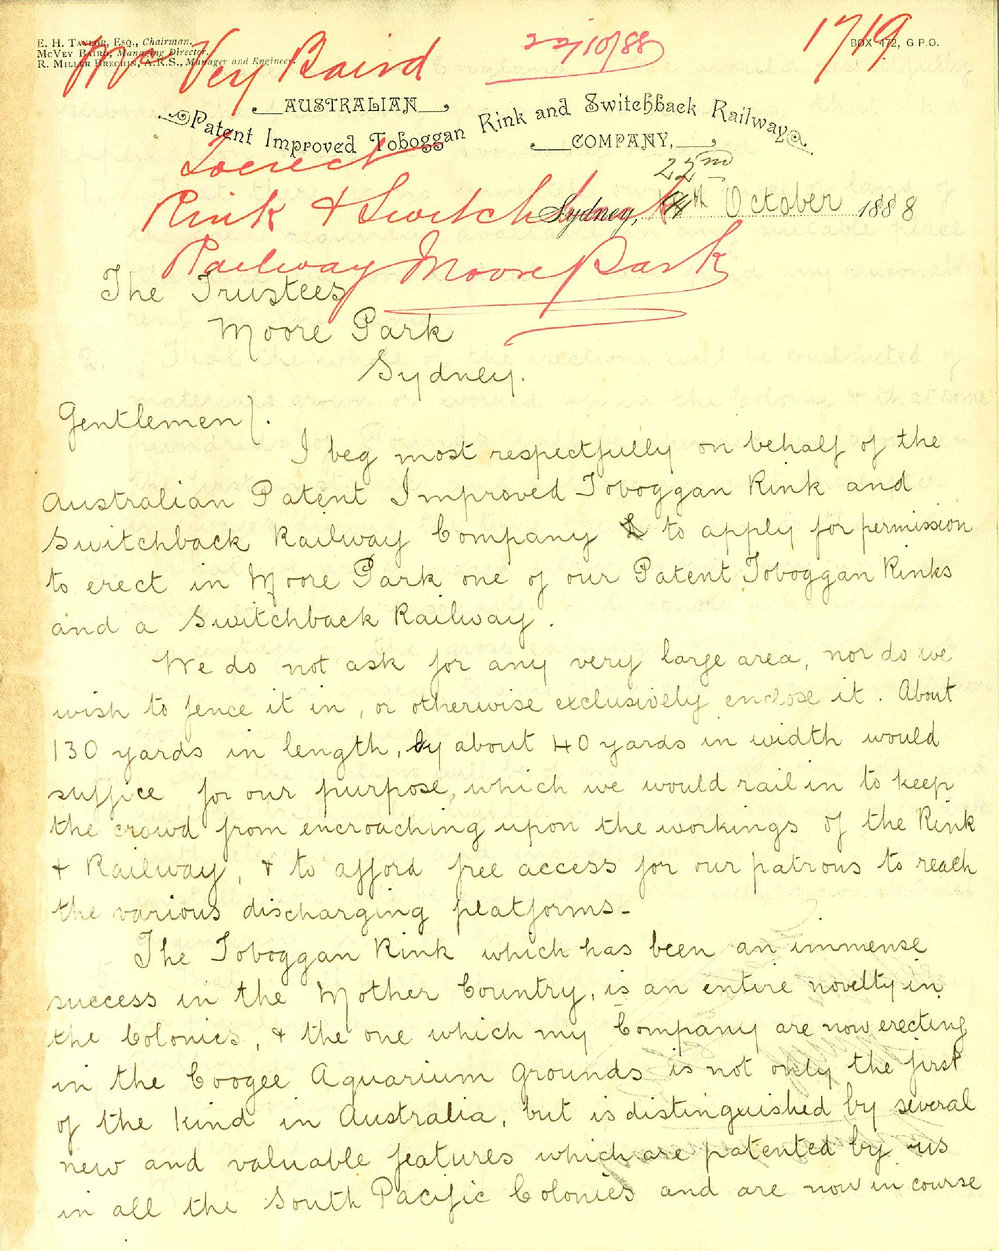 E. H. Taylor, Esq., Chairman.
McVey Baird, Managing Director.
R. Miller Brechin, A.R.S., Manager and Engineer.
BOX 472, G.P.O.
McVey Baird
22/10/88
1719
AUSTRALIAN
Patent Improved Toboggan Rink and Switchback Railway
COMPANY,
To erect
Rink & Switchback
Railway Moore Park
Sydney, 22nd October 1888
The Trustees
Moore Park
Sydney.
Gentlemen).
I beg most respectfully on behalf of the
Australian Patent Improved Toboggan Rink and
Switchback Railway Company to apply for permission
to erect in Moore Park one of our Patent Toboggan Rinks
and a Switchback Railway.
We do not ask for any very large area, nor do we
wish to fence it in, or otherwise exclusively enclose it. About
130 yards in length, by about 40 yards in width would
suffice for our purpose, which we would rail in to keep
the crowd from encroaching upon the workings of the Rink
& Railway, & to afford free access for our patrons to reach
the various discharging platforms -
The Toboggan Rink which has been an immense
success in the Mother Country, is an entire novelty in
the Colonies, & the one which my Company are now erecting
in the Coogee Aquarium Grounds is not only the first
of the kind in Australia, but is distinguished by several
new and valuable features which are patented by us
in all the South Pacific Colonies and are now in course